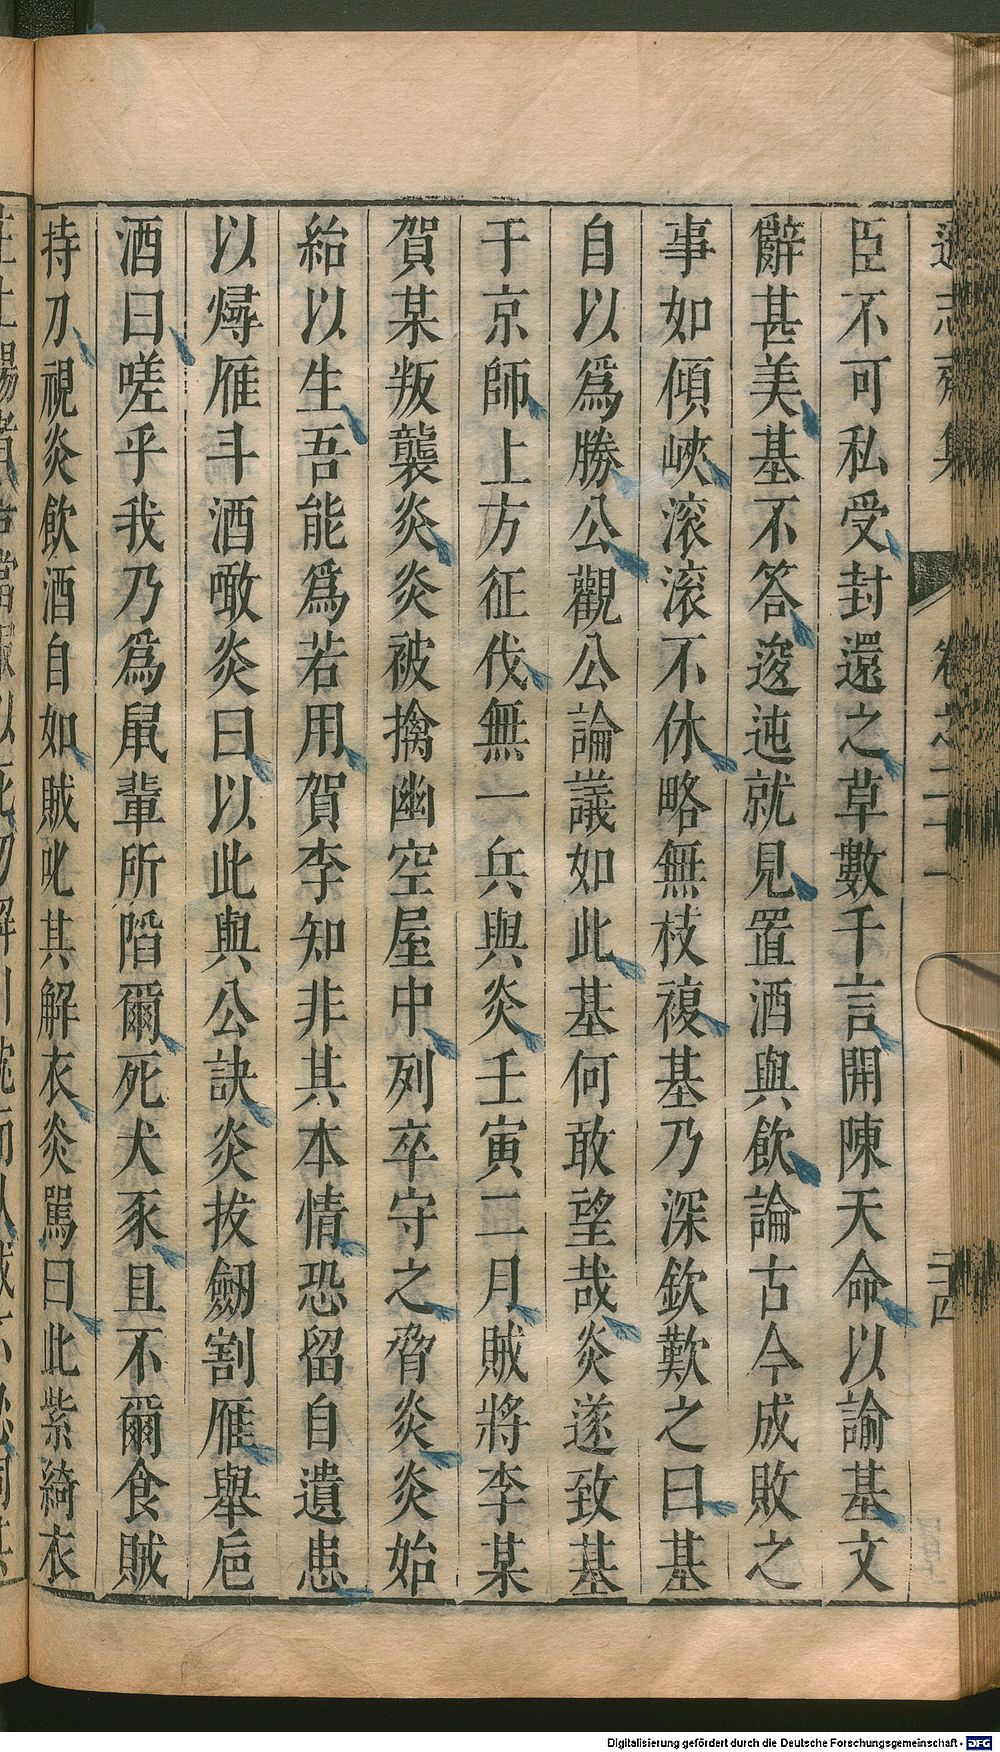 遜志齋集 卷之二十一 二十四
臣不可私受封還之草數千言開陳天命以諭基文
辭甚美基不答逡迍就見置酒與飲論古今成敗之
事如傾峽滾滾不休略無枝複基乃深欽歎之曰基
自以爲勝公觀公論議如此基何敢望哉炎遂致基
于京師上方征伐無一兵與炎壬寅二月賊將李某
賀某叛襲炎炎被擒幽空屋中列卒守之脅炎炎始
紿以生吾能爲若用賀李知非其本情恐留自遺患
以燖雁斗酒噉炎曰以此與公訣炎拔劒割雁舉巵
酒曰嗟乎我乃爲鼠輩所陷爾死犬豕且不爾食賊
持刀視炎飲酒自如賊叱其解衣炎罵曰此紫綺衣
Digitalisierung gefördert durch die Deutsche Forschungsgemeinschaft - DFG